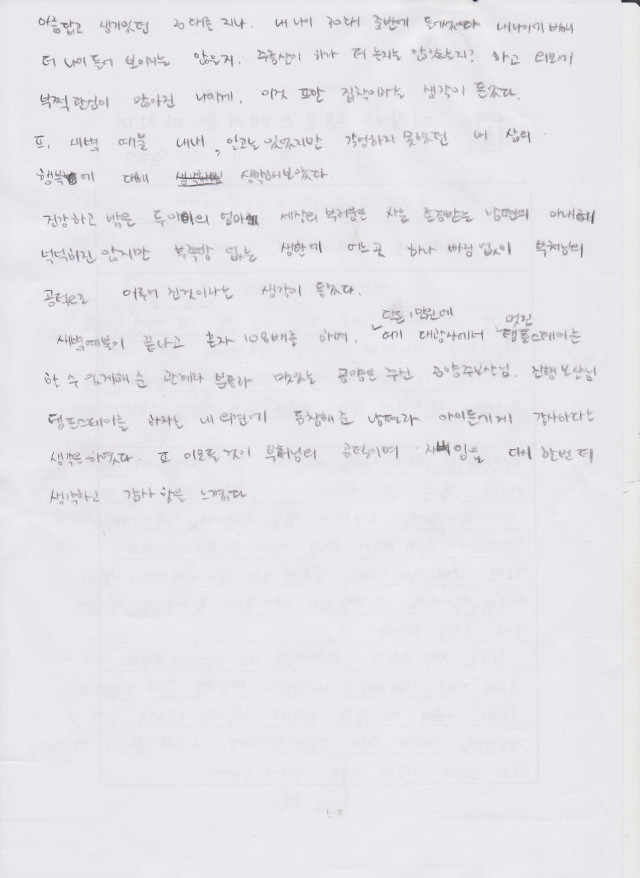 아름답고 생기있던 20대를 지나. 내 나이 30대 중반에 들어섰다 내나이에 비해
더 나이 들어 보이지는 않을지. 주름살이 하나 더 늘지는 않았는지? 하고 외모에
부쩍 관심이 많아진 나에게, 이것 또한 집착이라는 생각이 든다.
또, 새벽 예불 내내, 알고는 있었지만 각성하지 못했던 내 삶의
행복에 대해 생각해보았다
건강하고 밝은 두아이의 엄마 세상의 부러움은 사는 존경받는 남편의 아내
넉넉하진 않지만 부족함 없는 생활에 어느곳 하나 빠짐 없이 부처님의
공덕으로 이루어 진것이라는 생각이 든다.
새벽예불이 끝나고 혼자 108배를 하며, 단돈 1만원에 여기 대광사에서 멋진 템플스테이를
할 수 있게해 준 관계자 분들과 맛있는 공양을 주신 공양주보살님. 진행 보살님
템플스테이를 하자는 내 의견에 동참해준 남편과 아이들에게 감사하다는
생각을 하였다. 또 이모든 것이 부처님의 공덕이며 자비임을 다시 한번 더
생각하고 감사 함을 느꼈다.